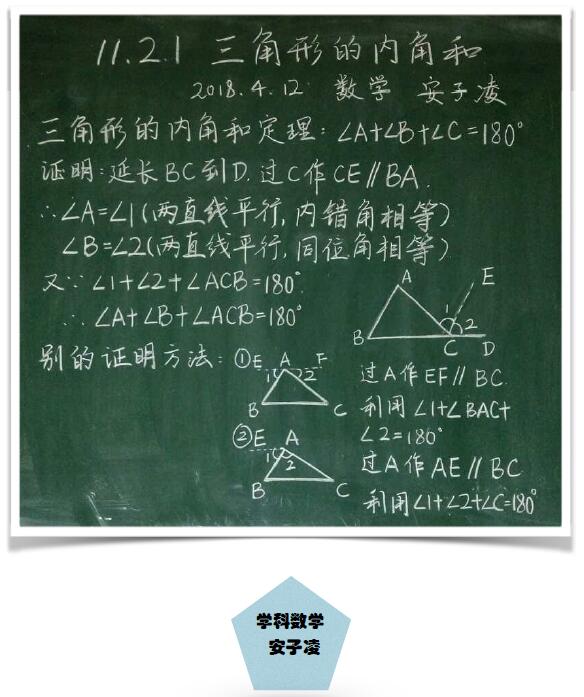 11.2.1 三角形的内角和
2018.4.12 数学 安子凌
三角形的内角和定理:∠A+∠B+∠C=180°
证明:延长BC到D.过C作CE∥BA.
∴∠A=∠1(两直线平行,内错角相等)
∠B=∠2(两直线平行,同位角相等)
又∵∠1+∠2+∠ACB=180°
∴∠A+∠B+∠ACB=180°
A
E
1
2
B
C
D
别的证明方法:①
E A F
1 2
B C
过A作EF∥BC.
利用∠1+∠BAC+
∠2=180°
②
E A
1
2
B C
过A作AE∥BC
利用∠1+∠2+∠C=180°
学科数学
安子凌